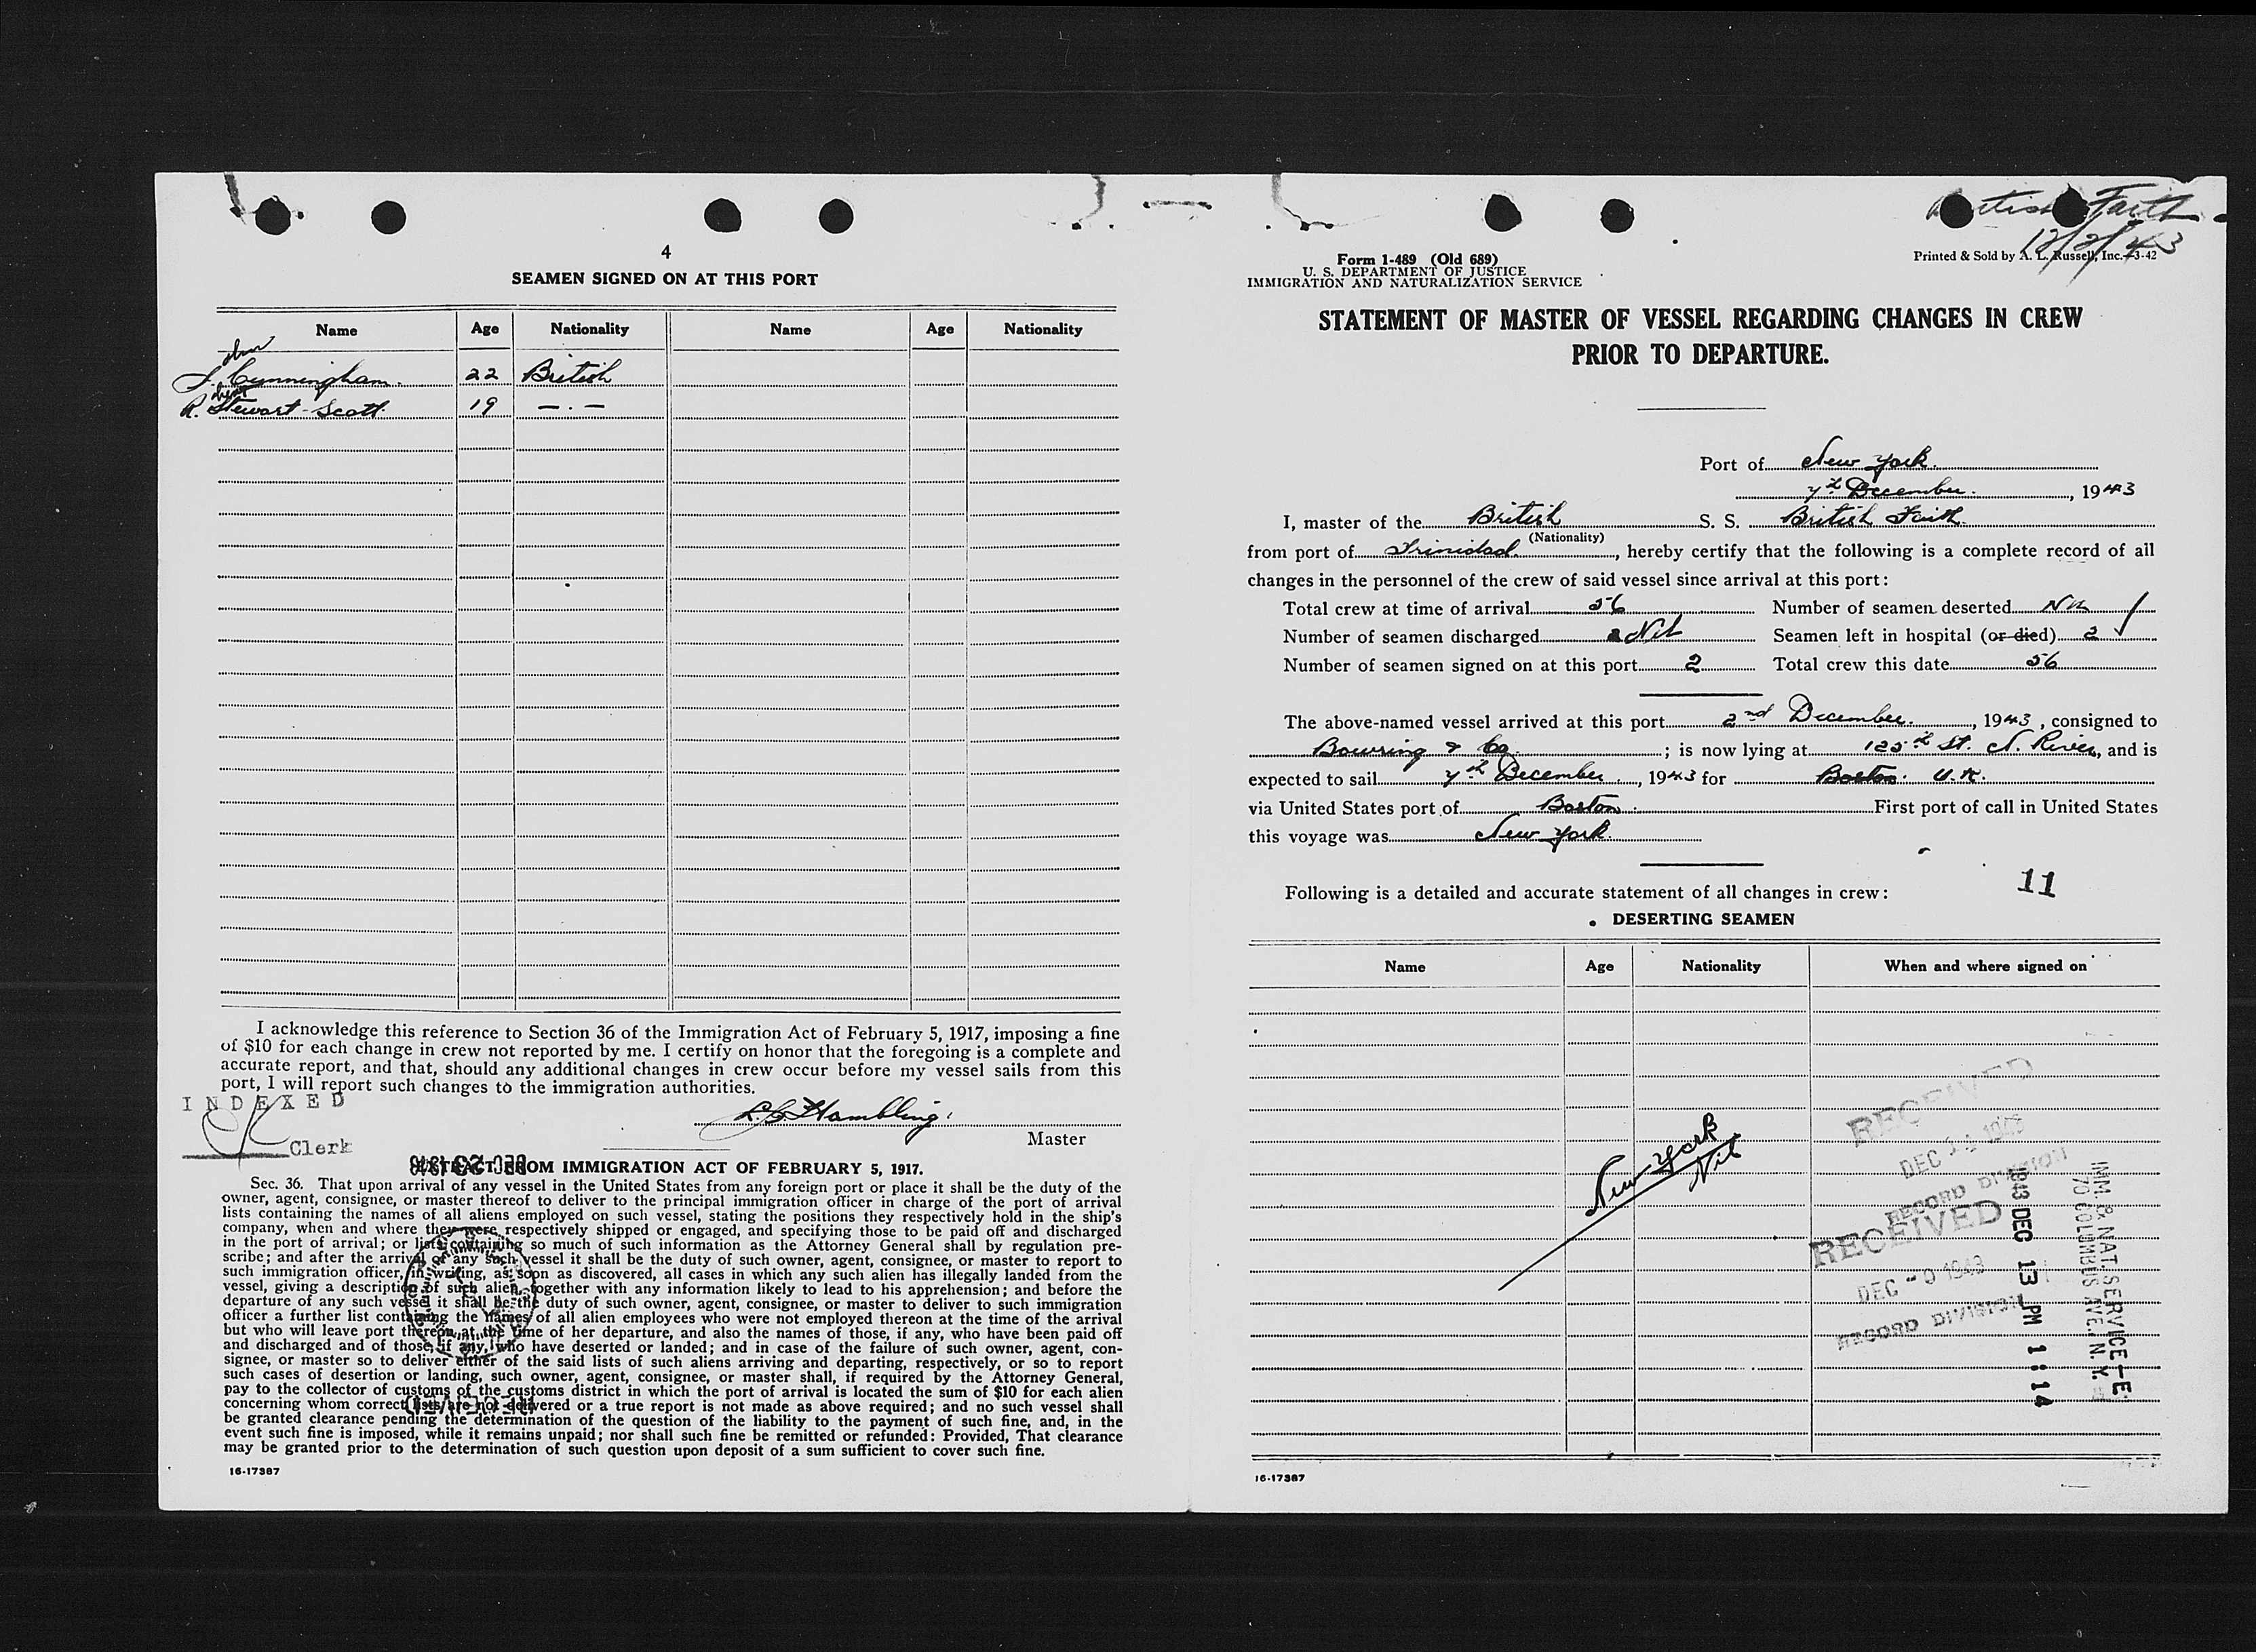 4
SEAMEN SIGNED ON AT THIS PORT
Name Age Nationality Name Age Nationality
J. Cunningham. 22 British
R. Stewart-Scott. 19 — . —
I acknowledge this reference to Section 36 of the Immigration Act of February 5, 1917, imposing a fine
of $10 for each change in crew not reported by me. I certify on honor that the foregoing is a complete and
accurate report, and that, should any additional changes in crew occur before my vessel sails from this
port, I will report such changes to the immigration authorities.
INDEXED
Clerk
Hambling.
Master
EXTRACT FROM IMMIGRATION ACT OF FEBRUARY 5, 1917.
Sec. 36. That upon arrival of any vessel in the United States from any foreign port or place it shall be the duty of the
owner, agent, consignee, or master thereof to deliver to the principal immigration officer in charge of the port of arrival
lists containing the names of all aliens employed on such vessel, stating the positions they respectively hold in the ship's
company, when and where they were respectively shipped or engaged, and specifying those to be paid off and discharged
in the port of arrival; or lists containing so much of such information as the Attorney General shall by regulation pre-
scribe; and after the arrival of any such vessel it shall be the duty of such owner, agent, consignee, or master to report to
such immigration officer, in writing, as soon as discovered, all cases in which any such alien has illegally landed from the
vessel, giving a description of such alien, together with any information likely to lead to his apprehension; and before the
departure of any such vessel it shall be the duty of such owner, agent, consignee, or master to deliver to such immigration
officer a further list containing the names of all alien employees who were not employed thereon at the time of the arrival
but who will leave port thereon at the time of her departure, and also the names of those, if any, who have been paid off
and discharged and of those, if any, who have deserted or landed; and in case of the failure of such owner, agent, con-
signee, or master so to deliver either of the said lists of such aliens arriving and departing, respectively, or so to report
such cases of desertion or landing, such owner, agent, consignee, or master shall, if required by the Attorney General,
pay to the collector of customs of the customs district in which the port of arrival is located the sum of $10 for each alien
concerning whom correct lists are not delivered or a true report is not made as above required; and no such vessel shall
be granted clearance pending the determination of the question of the liability to the payment of such fine, and, in the
event such fine is imposed, while it remains unpaid; nor shall such fine be remitted or refunded: Provided, That clearance
may be granted prior to the determination of such question upon deposit of a sum sufficient to cover such fine.
16-17387
British Faith
12/2/43
Form 1-489 (Old 689)
U. S. DEPARTMENT OF JUSTICE
IMMIGRATION AND NATURALIZATION SERVICE
Printed & Sold by A. L. Russell, Inc.-3-42
STATEMENT OF MASTER OF VESSEL REGARDING CHANGES IN CREW
PRIOR TO DEPARTURE.
Port of New York.
7th December. , 1943
I, master of the British S. S. British Faith.
(Nationality)
from port of Trinidad. , hereby certify that the following is a complete record of all
changes in the personnel of the crew of said vessel since arrival at this port:
Total crew at time of arrival 56 Number of seamen deserted Nil
Number of seamen discharged Nil Seamen left in hospital (or died) 2
Number of seamen signed on at this port 2 Total crew this date 56
The above-named vessel arrived at this port 2nd December. , 1943 , consigned to
Bowring & Co ; is now lying at 125th St. N. River, and is
expected to sail 7th December , 1943 for Boston. U.K.
via United States port of Boston. First port of call in United States
this voyage was New York.
Following is a detailed and accurate statement of all changes in crew:
11
DESERTING SEAMEN
Name Age Nationality When and where signed on
New York
Nil
RECEIVED
DEC 1943
RECORD DIVISION
RECEIVED
DEC 1943
RECORD DIVISION
1943 DEC 13 PM 1:14
IMM. & NAT. SERVICE-E
70 COLUMBUS AVE. N.Y.
16-17387